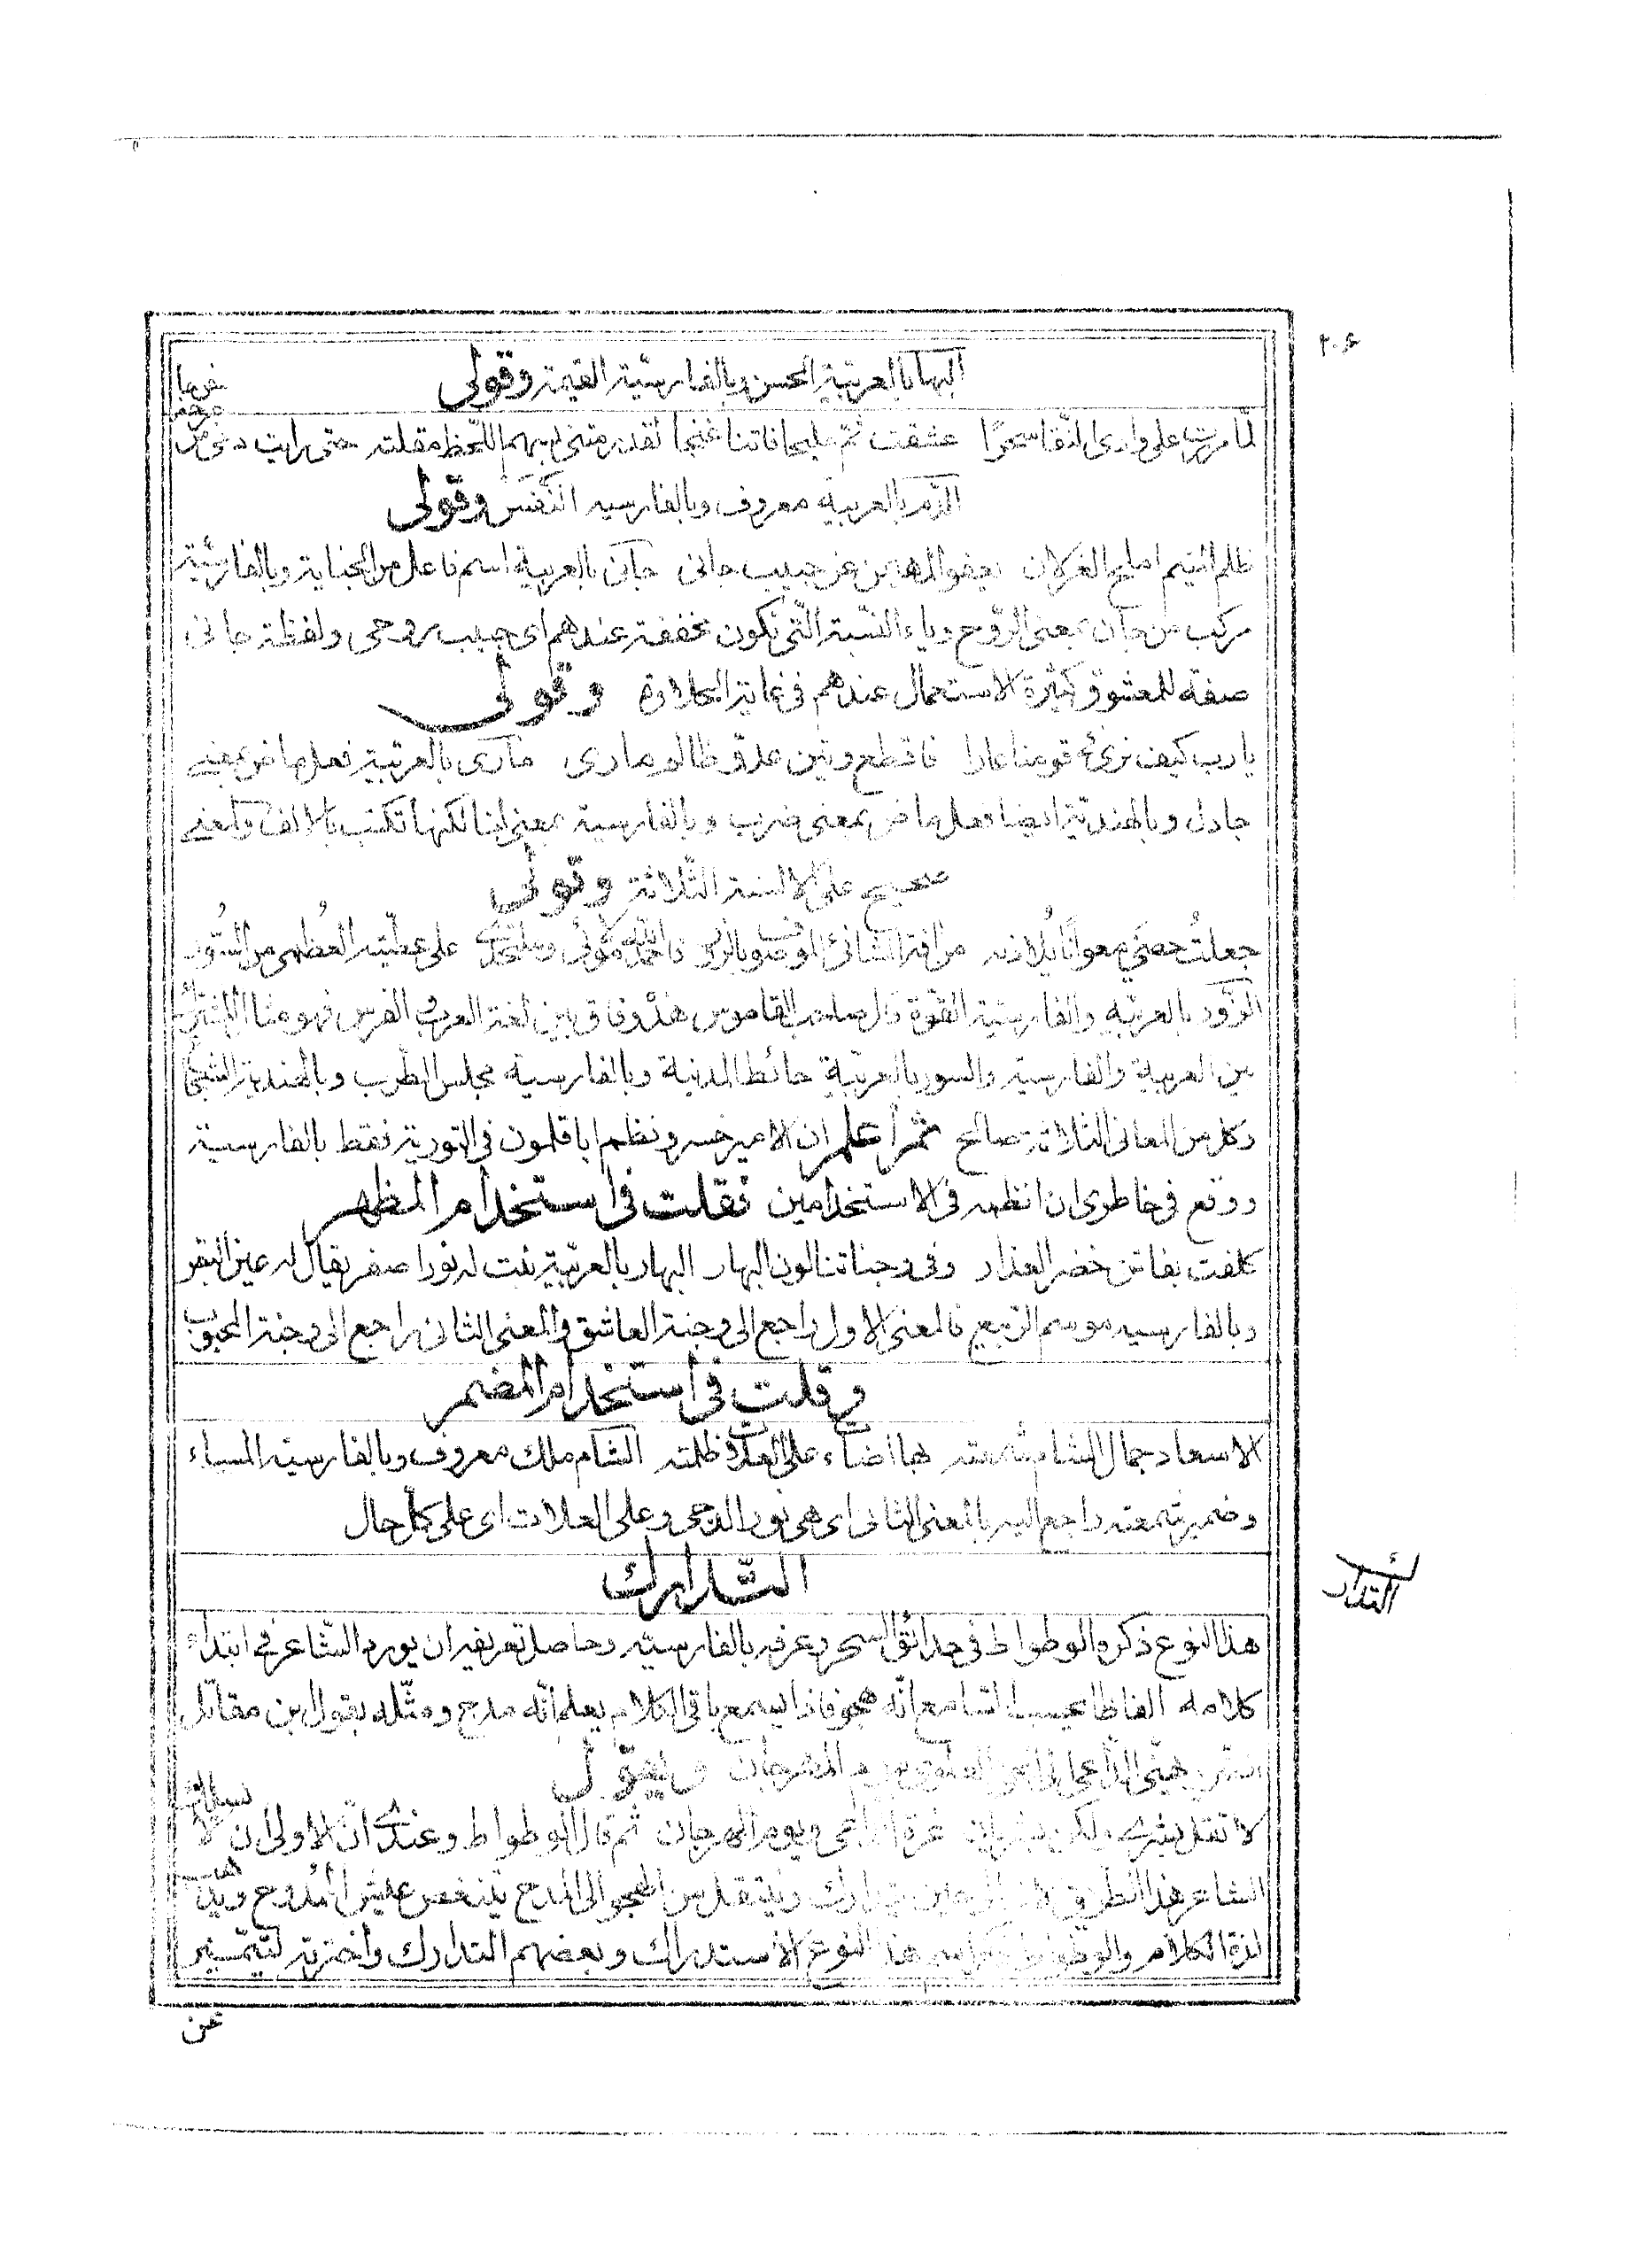 ٢٠٤
البها بالعربية الحسن وبالفارسية القيمة وقولى
لما مررت على وادى النقا سحرًا عشقت ثم مليحا فاتنا غنجا لقد رمتنى بسهم اللحظ مقلته حتى رايت دمى من
الدم بالعربية معروف وبالفارسية النَّفَسُ وقولى
ظلم المتيم املح الغزلان يعفو الرهين عن حبيب جانى جانى بالعربية اسم فاعل من الجناية وبالفارسيّة
مركب من جان بمعنى الروح وياء النسبة التى تكون مخففة عندهم اى حبيب روحى ولفظة جانى
صفة للمعشوق كثيرة الاستعمال عندهم فى غاية الحلاوة وقولى
يا رب كيف نرى قومنا فاقطع وتين عدو ظالم مارى مارى بالعربية فعل ماض بمعنى
جادل وبالهندية ايضا فعل ماض بمعنى ضرب وبالفارسية بمعنى لكنها تكتب بالالف والمعنى
صحيح على الالسنة الثلاثة وقولى
جعلتُ معوانًا من آفة الشانئ على عطيّته العُظمى من السُّور
الزَّور بالعربيّة والفارسيّة القوّة قال صاحب القاموس هذا وفاق بين لغة العرب والفرس فهو
بين العربية والفارسية والسور بالعربيّة حائط المدينة وبالفارسية مجلس الطرب وبالهندية الشجيع
وكل من المعانى الثلاثة صالح ثمّ اعلم ان الامير خسرو نظم اباقلمون فى التورية فقط بالفارسية
ووقع فى خاطرى ان انظمه فى الاستخدامين فقلت فى استخدام المظهر
كلفت بفاتن خضر العذار وفى وجناتنا لون البهار البهار بالعربيّة نبت له نور اصفر يقال له عين البقر
وبالفارسيه موسم الربيع فالمعنى الاول راجع الى وجنة العاشق والمعنى الثانى راجع الى وجنة المحبوب
وقلت فى استخدام المضمر
الا سعاد جمال الشام اضاء على العلات ظلمته الشام ملك معروف وبالفارسيّة المساء
وضمير راجع اليه بالمعنى الثانى اى هى نور الدجى وعلى العلات اى على كل حال
التّدارك
التدارك
هذا النوع ذكره الوطواط فى حدائق السحر وعرفه بالفارسيّة وحاصل تعريفه ان يورد الشّاعر فى ابتداء
كلامه الفاظا يحسب السّامع انّه هجو فاذا يسمع باقى الكلام يعلم انّه مدح ومثّله بقول ابن مقاتل
المهرجان ويقول
لا تقل بشرى ولكن بشريان غرة الداعى ويوم المهرجان ثم قال الوطواط وعندى انّ الاولى ان لا
الشاعر هذا الطريق لانه الى حين يتدارك وينتقل من الهجو الى المدح يتنغص عيش الممدوح ويذهب
لذة الكلام والوطواط هذا النوع الاستدراك وبعضهم التدارك واخترته لتميّزه
عن